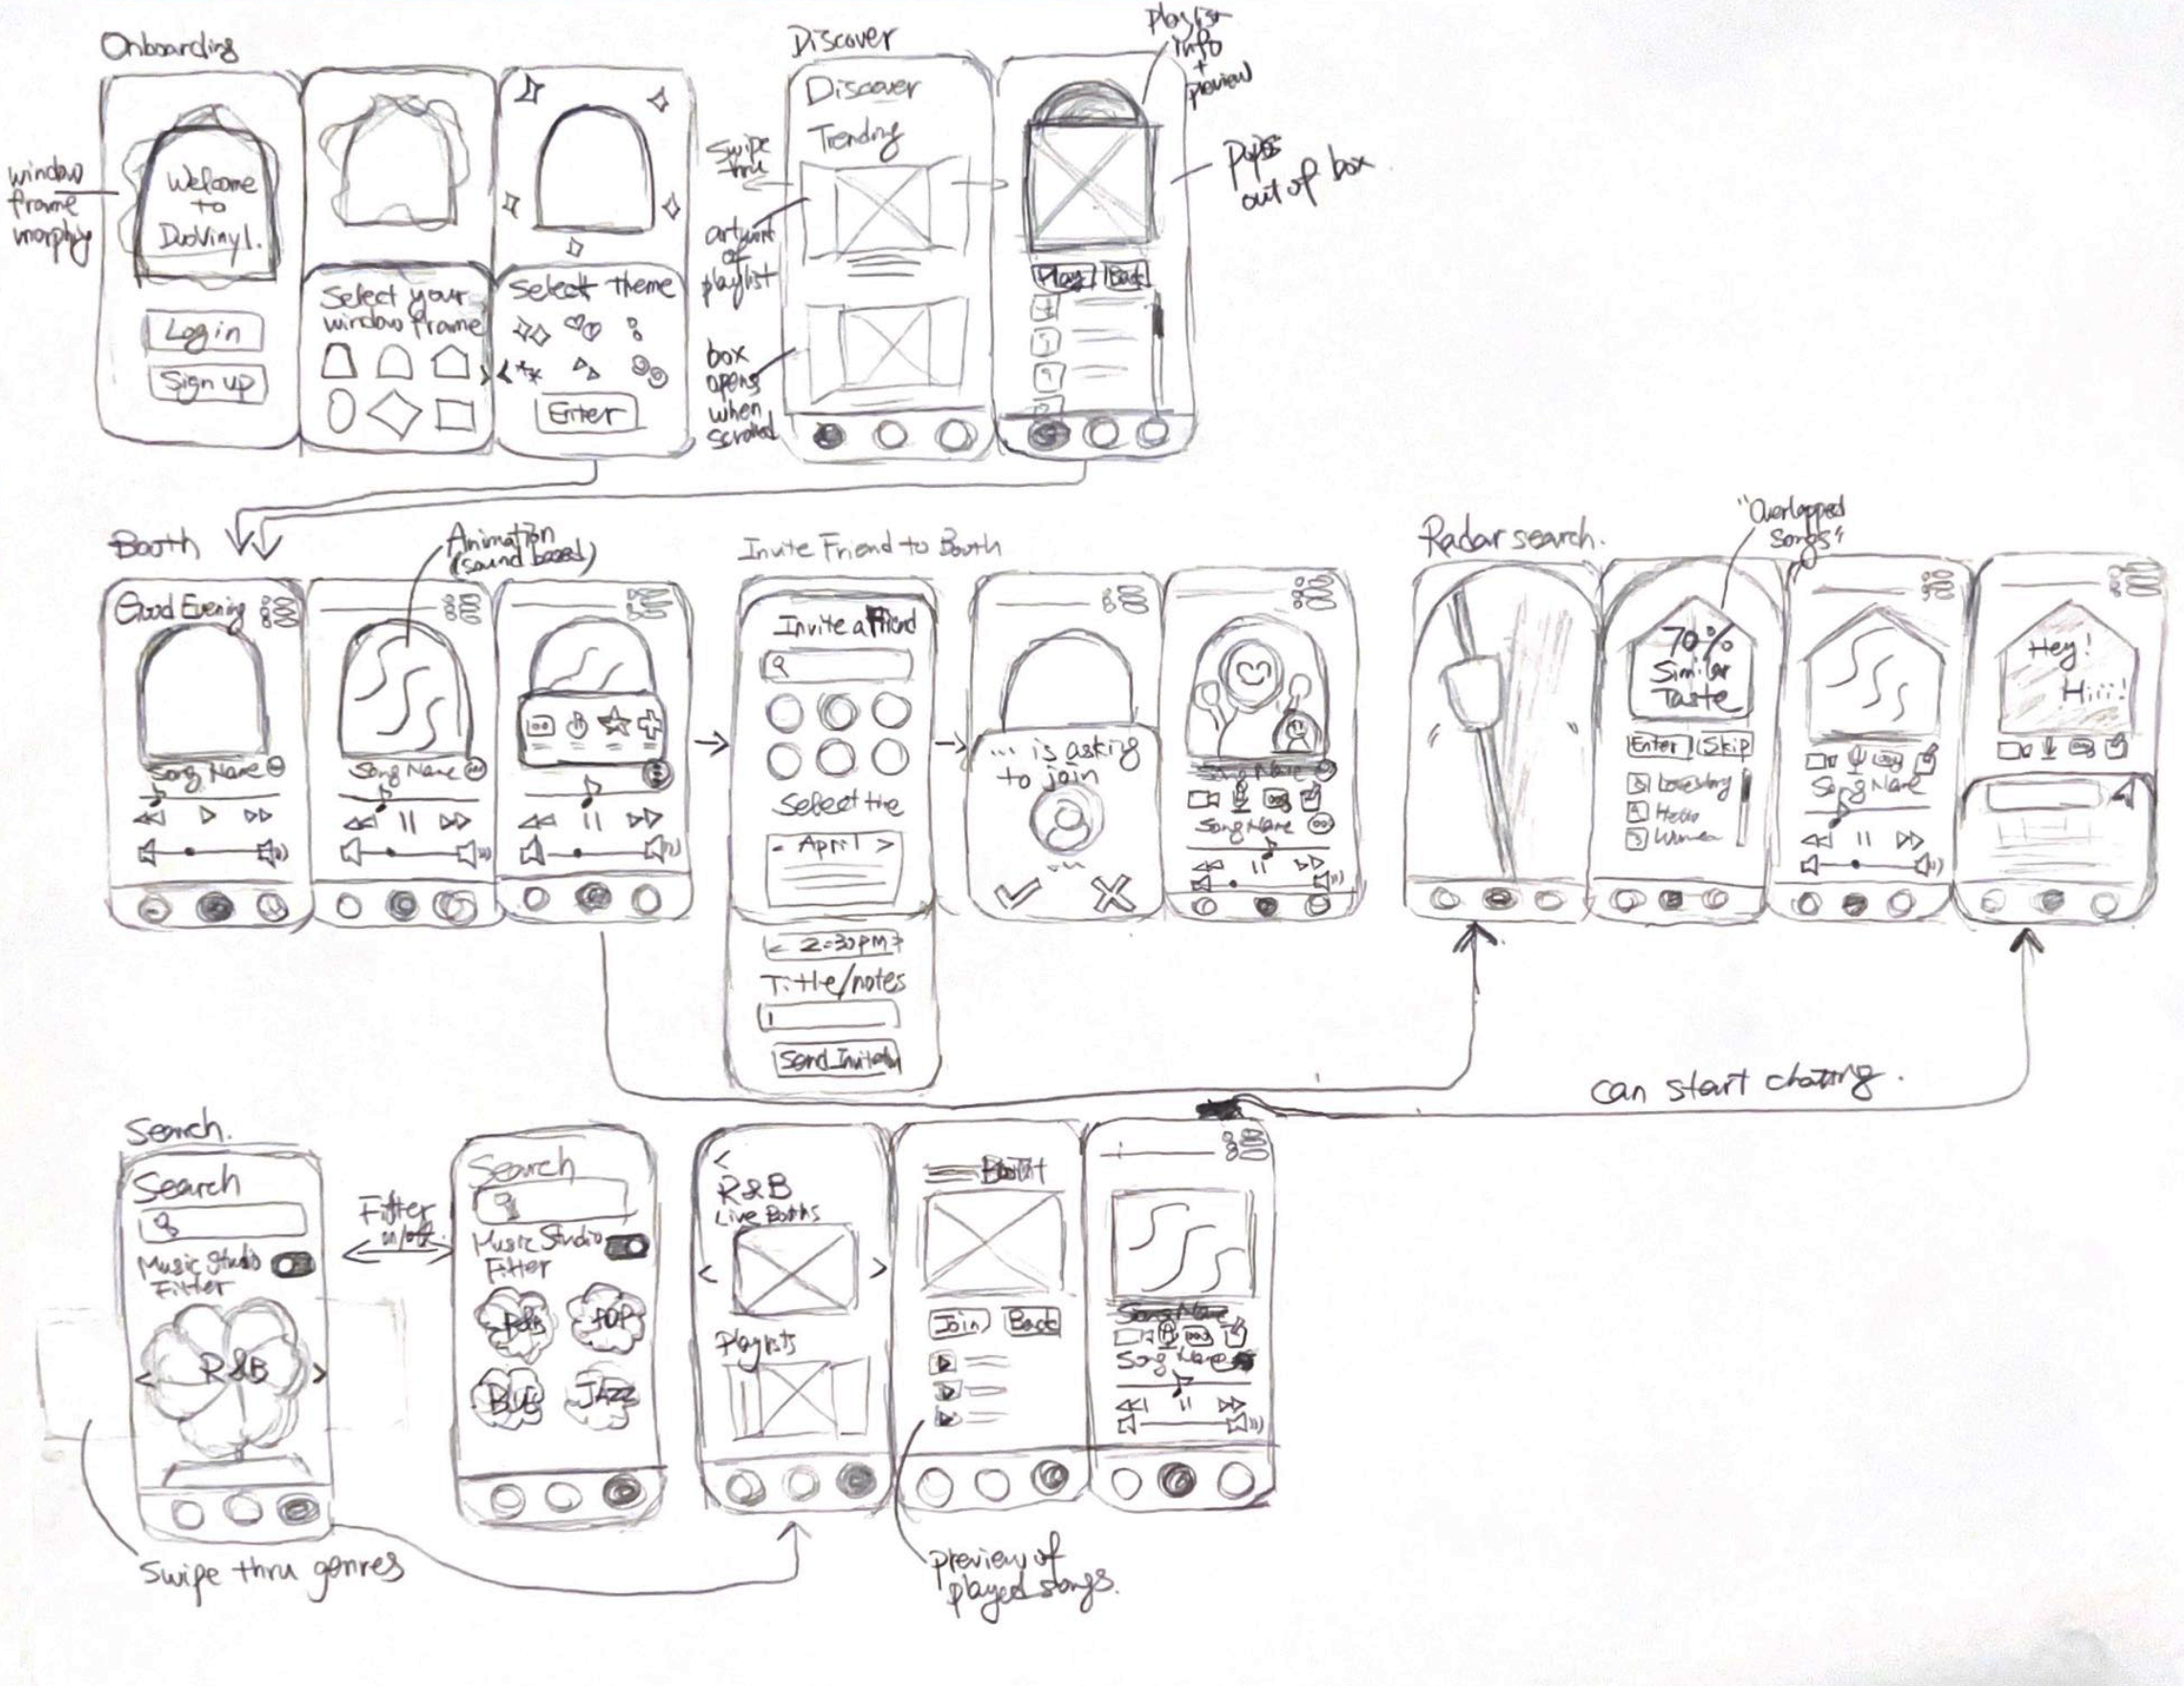 Onboarding
window
frame
morphing
Welcome
to
DuoVinyl.
Log in
Sign up
Select your
window frame
Select theme
Enter
Discover
Discover
Trending
swipe
thru
artwork
of
playlist
box
opens
when
scrolled
playlist
info
+
preview
pops
out of box
Play
Back
Booth
Animation
(sound based)
Good Evening
Song Name
Song Name
Invite Friend to Booth
Invite a Friend
Select time
- April >
< 2:30 PM >
Title/notes
Send Invitation
... is asking
to join
Song Name
Song Name
Radar search.
"Overlapped
Songs"
70%
Similar
Taste
Enter
Skip
Love story
Hello
Women
Song Name
Hey!
Hiii!
can start chatting.
Search.
Search
Music Studio
Filter
< R&B >
Swipe thru genres
Filter
on/off
Search
Music Studio
Filter
R&B
POP
JAZZ
<
R&B
Live Booths
< >
Playlists
Booth
Join
Back
preview of
played songs.
Song Name
Song Name